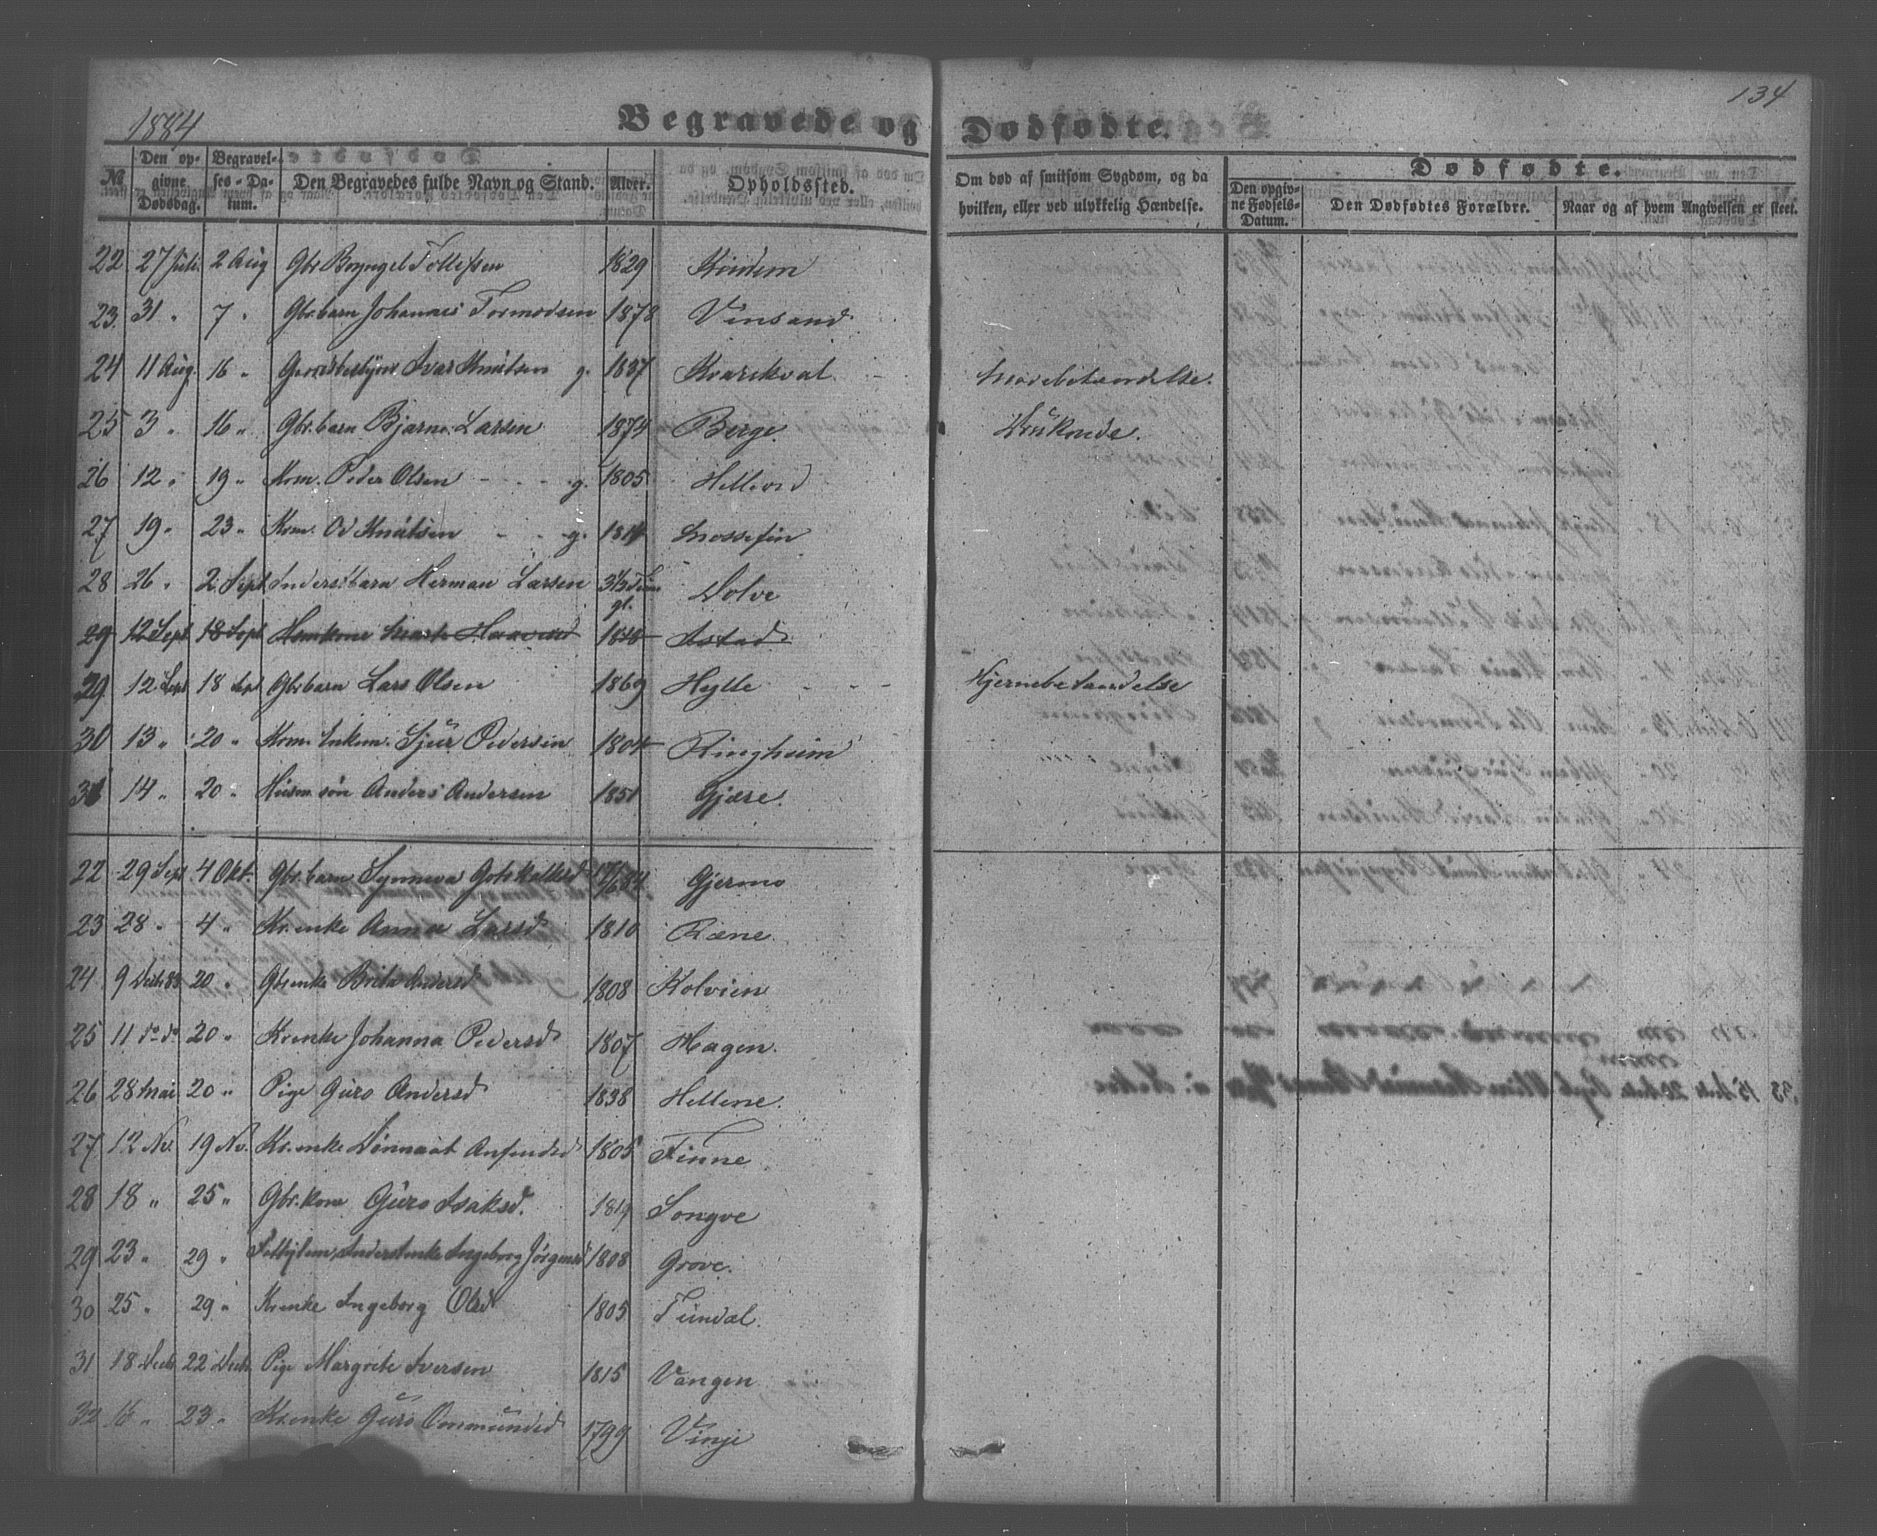 1884
134
Begravede og Dødfødte.
No. Den opgivne Dødsdag. Begravelses-Datum. Den Begravedes fulde Navn og Stand. Alder. Opholdssted. Om død af smitsom Sygdom, og da hvilken, eller ved ulykkelig Hændelse. Dødfødte. Den opgivne Fødsels-Datum. Den Dødfødtes Forældre. Naar og af hvem Angivelsen er skeet.
22 27 Juli 2 Aug Gbr Bryngel Tollefsen 1829 Kindem
23. 31 " 7 " Gbr.barn Johannes Tormodsen 1878 Vinsand
24 11 Aug. 16 " Ivar Knutsen g. 1837 Kvarekval
25 3 " 16 " Gbr.barn Bjarne Larsen 1874 Berge.
26 12 " 19 " Kom. Peder Olsen - - - g. 1805 Helleved
27 19 " 23 " Kom. Od Knutsen - - g. Mossefin
28 26 " 2 Sept Inders.barn Herman Larsen gl. Dolve
29 12 Sept 18 Sept Istad
29 12 Sept 18 Sept Gbr.barn Lars Olsen 1869 Hylle - - - Hjernebetændelse
30 13 " 20 " Kom. Enkem. Sjur Pedersen 1804 Ringheim
31 14 " 20 " Husm. søn Anders Andersen 1851 Gjære.
22 29 Sept 4 Okt. Gbr.barn Synneva Gotskalksd 17/6 84 Gjermo
23 28 " 4 " Kr.enke Anna Larsd 1810 Ræne.
24 9 Decbr 83 20 " Gbr.enke Brita Andersd 1808 Kolvien
25 11 do do 20 " Kr.enke Johanna Pedersd 1807 Hagen.
26 28 Mai 20 " Pige Guro Andersd 1838 Hellene.
27 12 Nv. 19 Nv. Kr.enke Anfindsd 1805 Finne
28 18 " 25 " Gbr.kone Guro Isaksd. 1819 Songve
29 23 " 29 " Inderstenke Ingeborg Jørgensd 1808 Grove.
30 25 " 29 " Kr.enke Ingeborg Olsd 1805 Tundal.
31 18 Decbr 22 Decbr Pige Margrete Iversen 1815 Vangen
32 16 " 23 " Kr.enke Guro Ommundsd 1799 Vinje